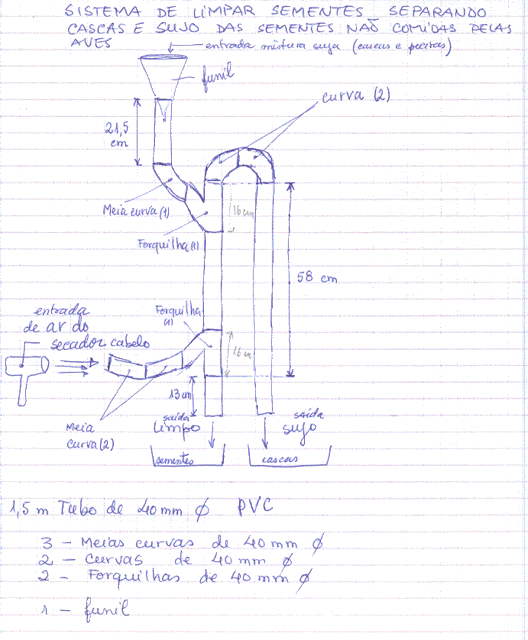 SISTEMA DE LIMPAR SEMENTES SEPARANDO
CASCAS E SUJO DAS SEMENTES NÃO COMIDAS PELAS
AVES
entrada mistura suja (cascas e poeiras)
funil
curva (2)
21,5
cm
Meia curva (1)
16 cm
Forquilha (1)
58 cm
Forquilha
(1)
entrada
de ar do
secador cabelo
16 cm
13 cm
Meia
curva (2)
saída
limpo
saída
sujo
sementes
cascas
1,5 m Tubo de 40 mm Ø PVC
3 - Meias curvas de 40 mm Ø
2 - Curvas de 40 mm Ø
2 - Forquilhas de 40 mm Ø
1 - funil